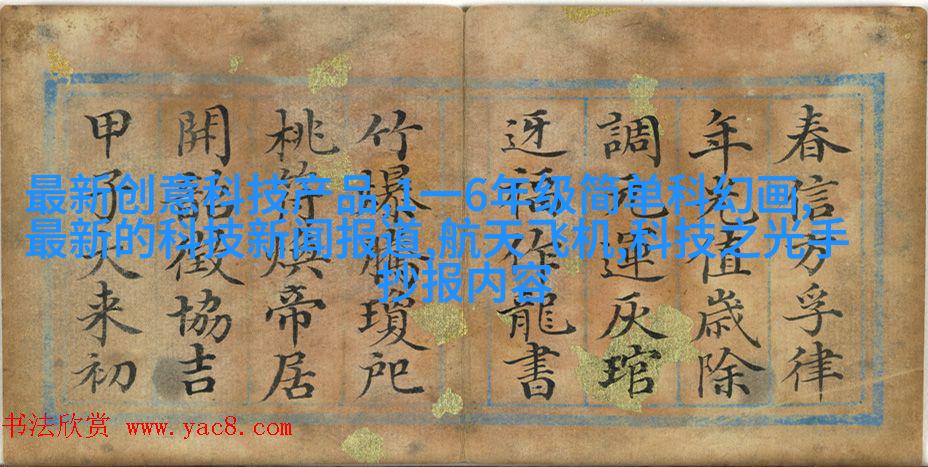 春信方孚律
年光值歳除
調元運灰琯
迓福作龍書
竹爆瓊戺
桃符煥帝居
開韶徵協吉
甲子来初
最新创意科技产品,1一6年级简单科幻画,
最新的科技新闻报道,航天飞机,科技之光手
抄报内容
书法欣赏 www.yac8.com